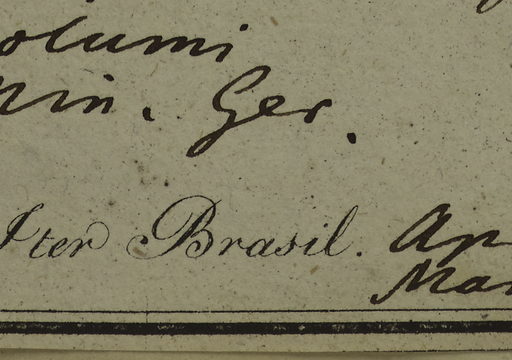 olumi
Min. Ger.
Iter Brasil. Ap
Mar